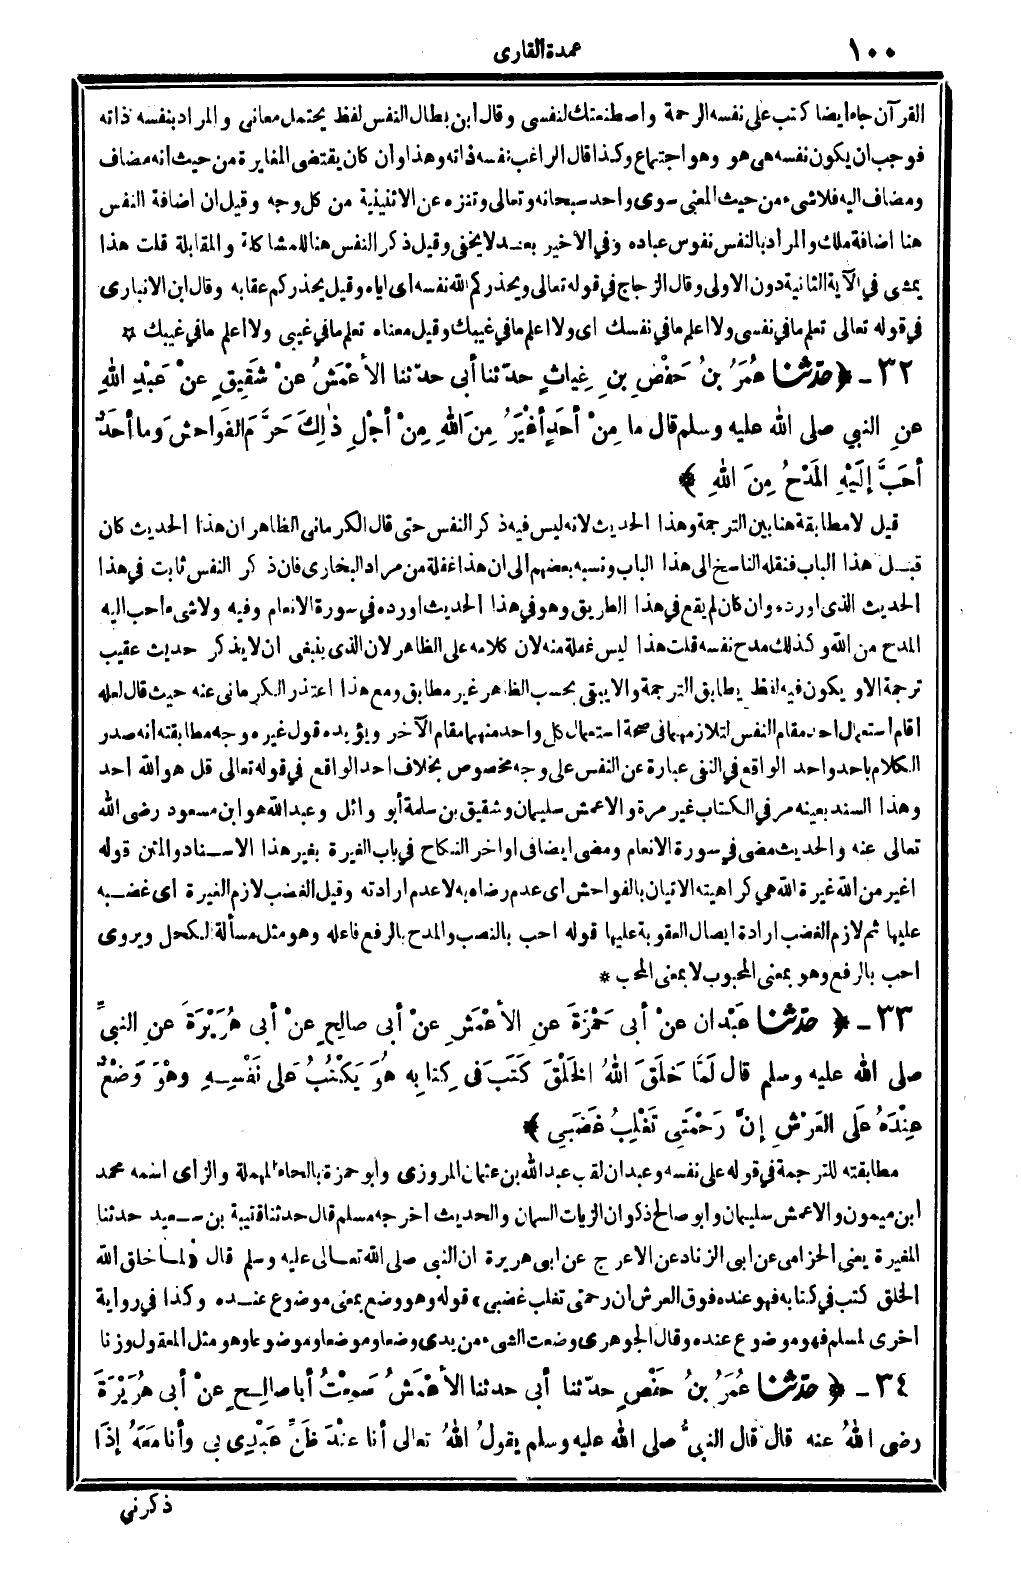 ١٠٠
عمدة القارى
القرآن جاء ايضا كتب على نفسه الرحمة واصطنعتك لنفسى وقال ابن بطال النفس لفظ يحتمل معانى والمراد بنفسه ذاته
فوجب ان يكون نفسه هى هو وهو اجتماع وكذا قال الراغب نفسه ذاته وهذا وان كان يقتضى المغايرة من حيث انه مضاف
ومضاف اليه فلا شىء من حيث المعنى سوى واحد سبحانه وتعالى وتنزه عن الاثنينية من كل وجه وقيل ان اضافة النفس
هنا اضافة ملك والمراد بالنفس نفوس عباده وفي الاخير بعد لا يخفى وقيل ذكر النفس هنا للمشاكلة والمقابلة قلت هذا
يمشى في الآية الثانية دون الاولى وقال الزجاج في قوله تعالى ويحذركم الله نفسه اى اياه وقيل يحذركم عقابه وقال ابن الانبارى
في قوله تعالى تعلم ما في نفسى ولا اعلم ما في نفسك اى ولا اعلم ما في غيبك وقيل معناه تعلم ما في غيبى ولا اعلم ما في غيبك ☆
٣٢ ـ ﴿ حَدَّثَنَا عُمَرُ بنُ حَفْصِ بنِ غِياثٍ حدّثنا أبى حدّثنا الأعْمَشُ عنْ شَقِيقٍ عنْ عَبْدِ اللهِ
عنِ النبي صلى الله عليه وسلم قال ما مِنْ أحَدٍ أغْيَرُ مِنَ اللهِ مِنْ أجْلِ ذٰلِكَ حَرَّمَ الفَواحِشَ وما أحَدٌ
أحَبَّ إلَيْهِ المَدْحُ مِنَ اللهِ ﴾
قيل لا مطابقة هنا بين الترجمة وهذا الحديث لانه ليس فيه ذكر النفس حتى قال الكرمانى الظاهر ان هذا الحديث كان
قبل هذا الباب فنقله الناسخ الى هذا الباب ونسبه بعضهم الى ان هذا غفلة من مراد البخارى فان ذكر النفس ثابت في هذا
الحديث الذى اورده وان كان لم يقع في هذا الطريق وهو في هذا الحديث اورده في سورة الانعام وفيه ولا شىء احب اليه
المدح من الله وكذلك مدح نفسه قلت هذا ليس غفلة منه لان كلامه على الظاهر لان الذى ينبغى ان لا يذكر حديث عقيب
ترجمة الا ويكون فيه لفظ يطابق الترجمة والا يبقى بحسب الظاهر غير مطابق ومع هذا اعتذر الكرمانى عنه حيث قال لعله
أقام استعمال احد مقام النفس لتلازمهما فى صحة استعمال كل واحد منهما مقام الآخر ويؤيده قول غيره وجه مطابقته انه صدر
الكلام باحد واحد الواقع في النفى عبارة عن النفس على وجه مخصوص بخلاف احد الواقع في قوله تعالى قل هو الله احد
وهذا السند بعينه مر في الكتاب غير مرة والاعمش سليمان وشقيق بن سلمة أبو وائل وعبد الله هو ابن مسعود رضى الله
تعالى عنه والحديث مضى في سورة الانعام ومضى ايضا فى اواخر النكاح في باب الغيرة بغير هذا الاسناد والمتن قوله
اغير من الله غيرة الله هي كراهيته الاتيان بالفواحش اى عدم رضاه به لا عدم ارادته وقيل الغضب لازم الغيرة اى غضبه
عليها ثم لازم الغضب ارادة ايصال العقوبة عليها قوله احب بالنصب والمدح بالرفع فاعله وهو مثل مسألة الكحل ويروى
احب بالرفع وهو بمعنى المحبوب لا بمعنى المحب ☆
٣٣ ـ ﴿ حَدَّثَنَا عَبْدان عنْ أبى حَمْزَةَ عنِ الأعْمَشِ عنْ أبى صالِحٍ عنْ أبى هُرَيْرَةَ عنِ النبيِّ
صلى الله عليه وسلم قال لَمَّا خَلَقَ اللهُ الخَلْقَ كَتَبَ فى كِتابِهِ هُوَ يَكْتُبُ عَلى نَفْسِهِ وهْوَ وَضْعٌ
عِنْدَهُ عَلَى العَرْشِ إنَّ رَحْمَتِى تَغْلِبُ غَضَبِي ﴾
مطابقته للترجمة في قوله على نفسه وعبدان لقب عبد الله بن عثمان المروزى وأبو حمزة بالحاء المهملة والزاى اسمه محمد
ابن ميمون والاعمش سليمان وابو صالح ذكوان الزيات السمان والحديث اخرجه مسلم قال حدثنا قتيبة بن سعيد حدثنا
المغيرة يعنى الحزامى عن ابى الزناد عن الاعرج عن ابى هريرة ان النبى صلى الله تعالى عليه وسلم قال «لما خلق الله
الخلق كتب في كتابه فهو عنده فوق العرش ان رحمتى تغلب غضبى» قوله وهو وضع بمعنى موضوع عنده وكذا في رواية
اخرى لمسلم فهو موضوع عنده وقال الجوهرى وضعت الشىء من يدى وضعا وموضعا وموضوعا وهو مثل المعقول وزنا
٣٤ ـ ﴿ حَدَّثَنَا عُمَرُ بنُ حَفْصٍ حدّثنا أبى حدثنا الأعْمَشُ سَمِعْتُ أبا صالِحٍ عنْ أبى هُرَيْرَةَ
رضى اللهُ عنه قال قال النبيُّ صلى الله عليه وسلم يقولُ اللهُ تعالى أنا عنْدَ ظَنِّ عَبْدِى بى وأنا مَعَهُ إذَا
ذكرني